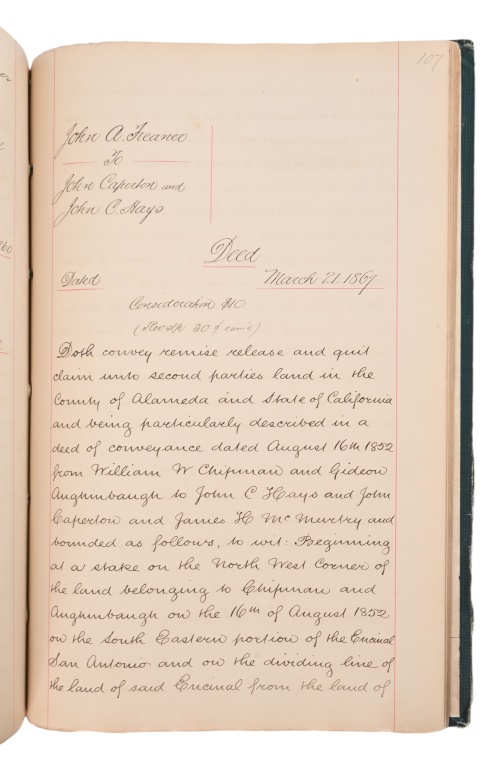 107
John A. Treanor
To
John Caperton and
John C. Hays
Deed
Dated March 21. 1867
Consideration $10
50
Doth convey remise release and quit
claim unto second parties land in the
County of Alameda and State of California
and being particularly described in a
deed of conveyance dated August 16th 1852
from William W Chipman and Gideon
Aughinbaugh to John C Hays and John
Caperton and James H McMurtry and
bounded as follows, to wit: Beginning
at a stake on the North West Corner of
the land belonging to Chipman and
Aughinbaugh on the 16th of August 1852
on the South Eastern portion of the Encinal
San Antonio and on the dividing line of
the land of said Encinal from the land of